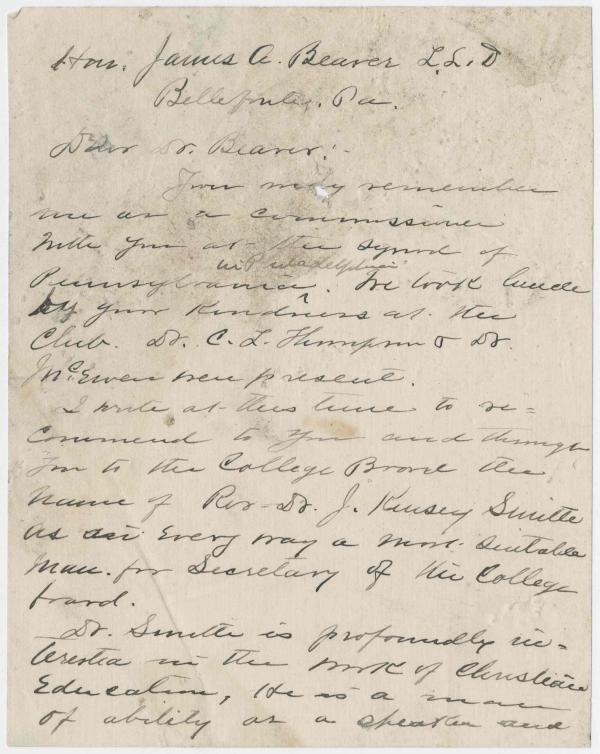 Hon. James A. Beaver L.L.D
Bellefonte, Pa.
Dear Dr. Beaver:-
You may remember
me as a commissioner
with you at the synod of
in Philadelphia
Pennsylvania. We took lunch
by your kindness at the
Club. Dr. C. L. Thompson & Dr.
McEwen were present.
I write at this time to re=
commend to you and through
you to the College Board the
name of Rev. Dr. J. Kinsey Smith
as in every way a most suitable
man for Secretary of the College
board.
Dr. Smith is profoundly in=
terested in the work of Christian
Education, He is a man
of ability as a speaker and